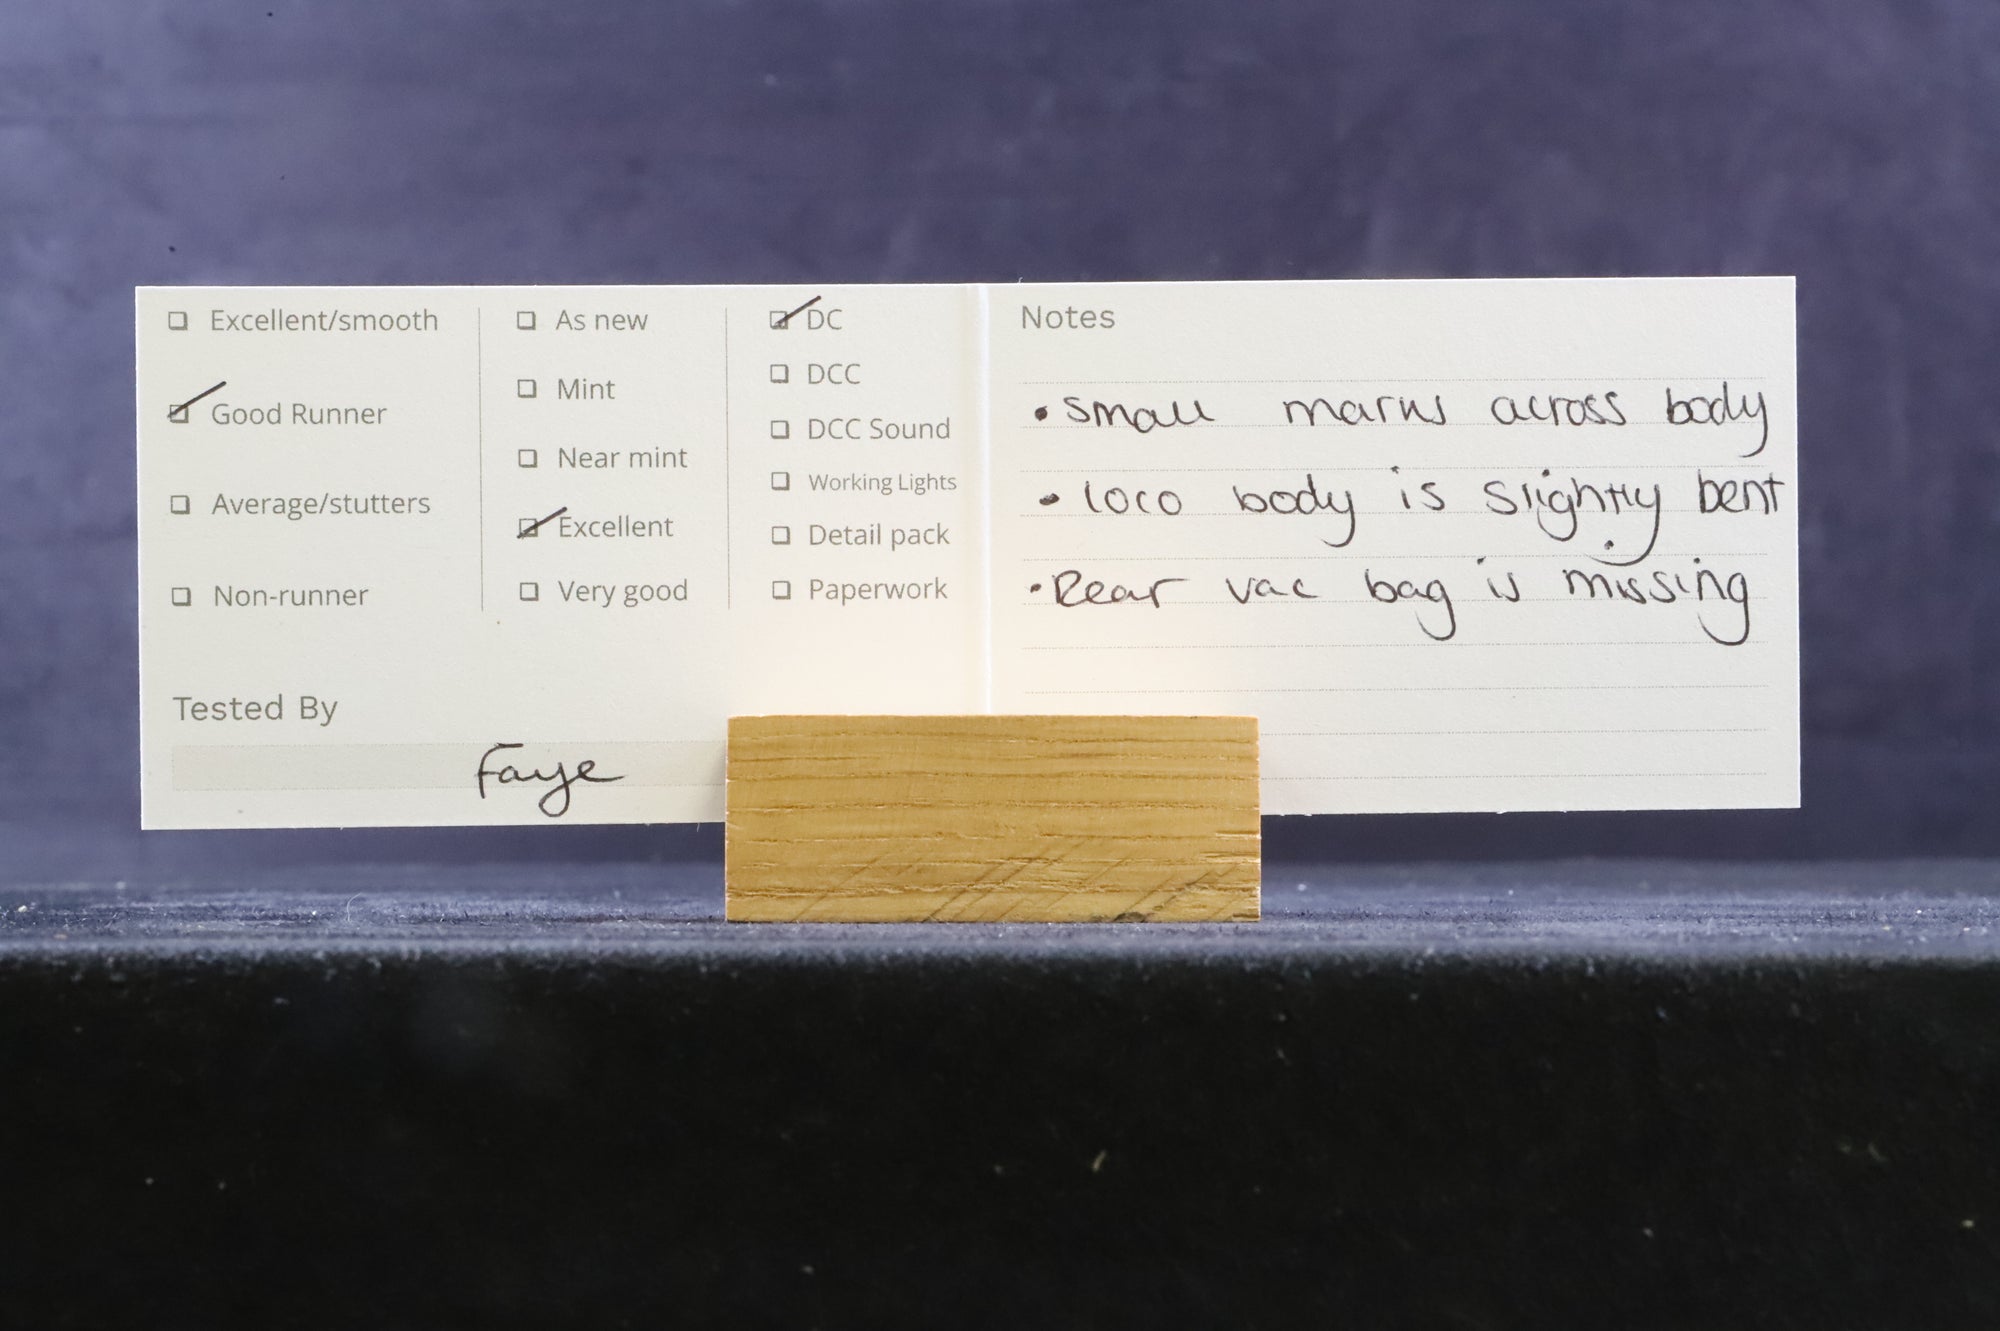 Excellent/smooth
Good Runner
Average/stutters
Non-runner
As new
Mint
Near mint
Excellent
Very good
DC
DCC
DCC Sound
Working Lights
Detail pack
Paperwork
Tested By
Faye
Notes
• small marks across body
• loco body is slightly bent
• Rear vac bag is missing